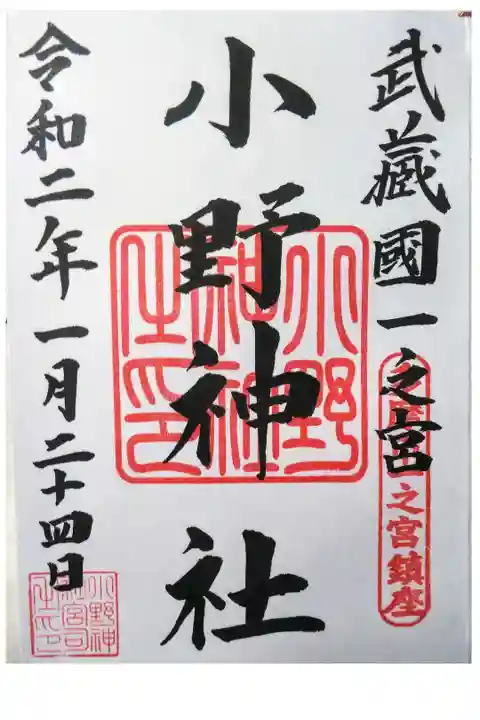 武藏國一之宮
之宮鎮座
小野神社
小野
令和二年一月二十四日
小野神
社宮司
之印